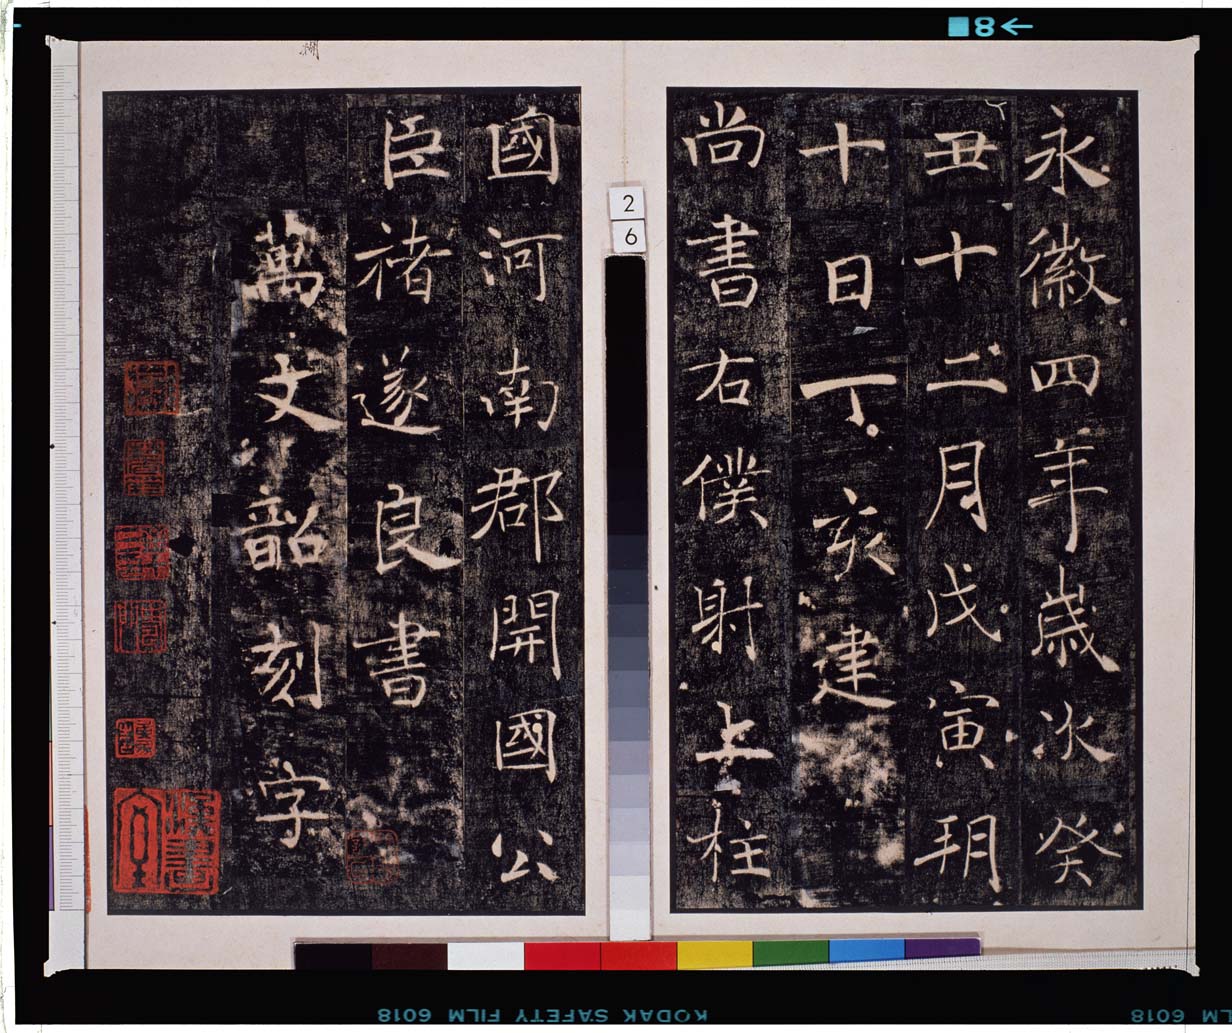 永徽四年歲次癸
丑十二月戊寅朔
十日丁亥建
尚書右僕射上柱
國河南郡開國公
臣褚遂良書
萬文韶刻字
2
6
8
KODAK SAFETY FILM 6018
6018